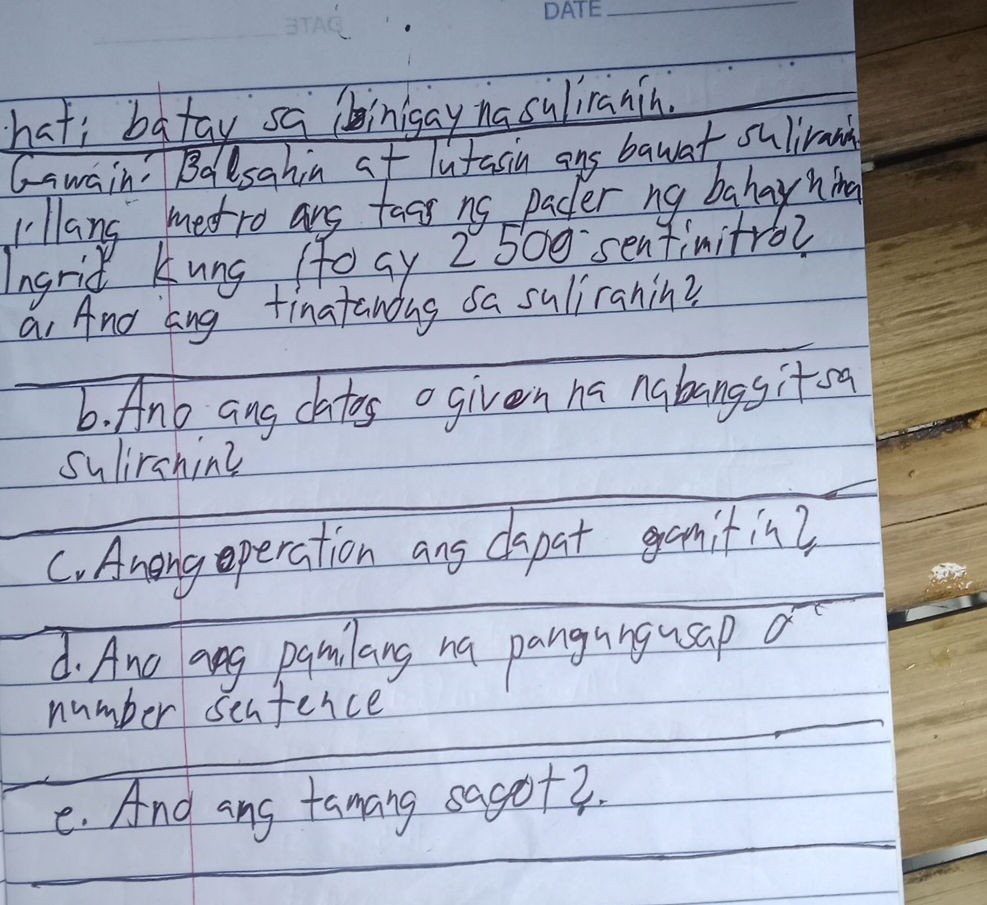 DATE
DATE
hati batay sa ibinigay na suliranin.
Gawain: Balsahin at lutasin ang bawat suliranin
1. Ilang metro ang taas ng pader ng bahay nina
Ingrid kung ito ay 2 500 sentimitro?
a. Ano ang tinatanong sa suliranin?
b. Ano ang datos o given na nabanggit sa
suliranin?
c. Anong operation ang dapat gamitin?
d. Ano ang pamilang na pangungusap o
number sentence
e. Ano ang tamang sagot?.